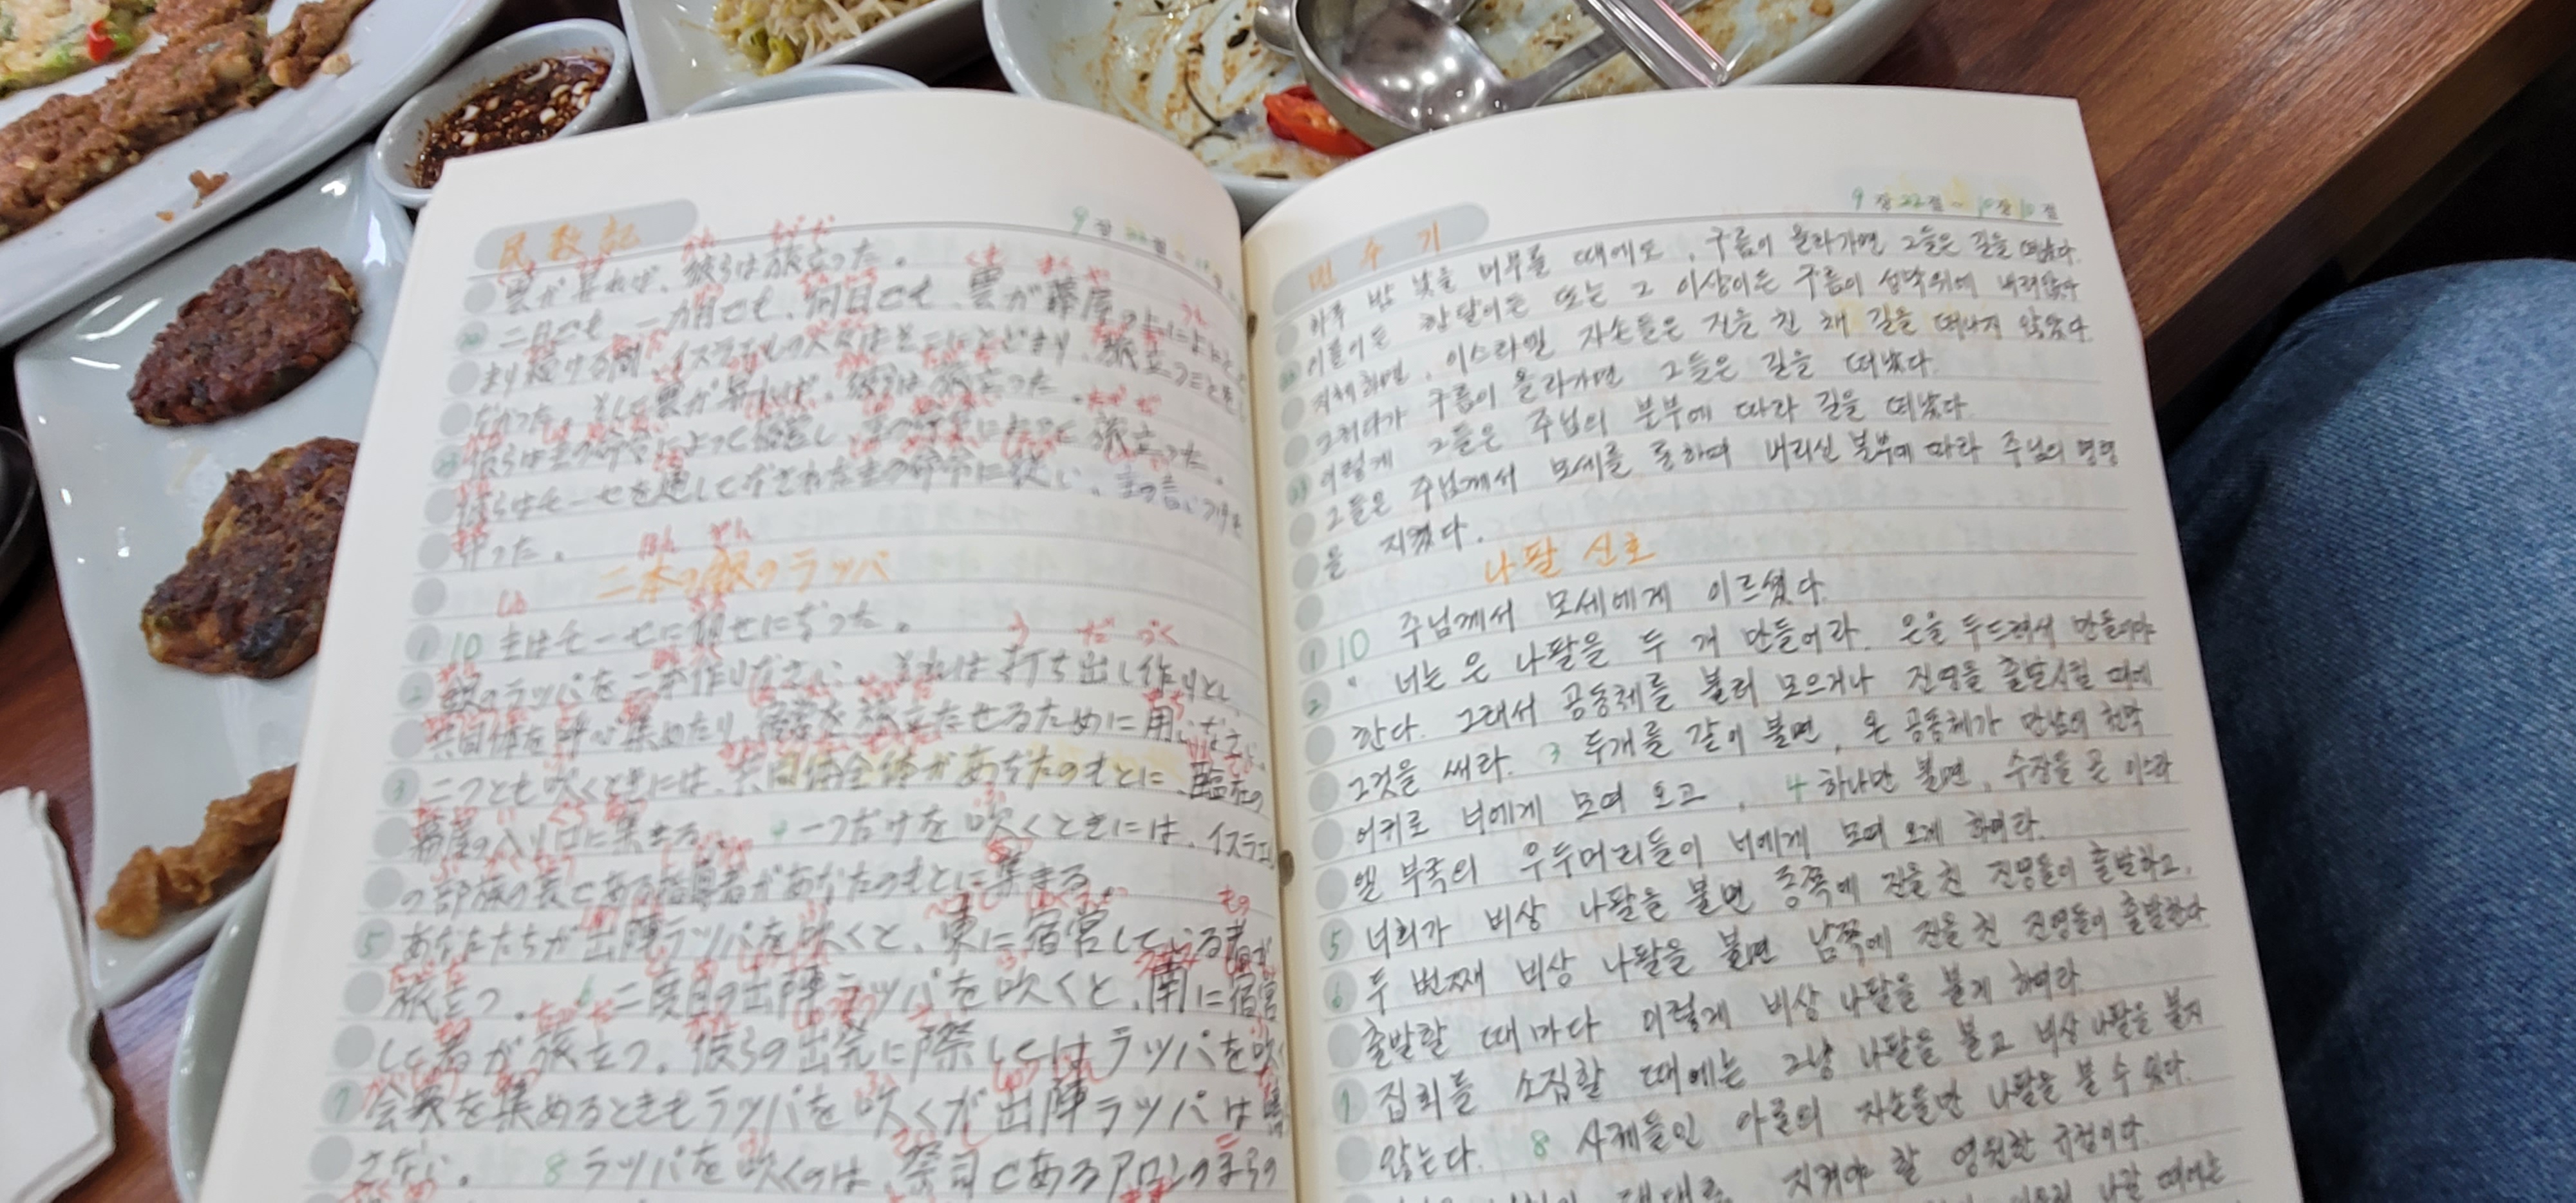 民数記
9장 22절
雲が昇れば、彼らは旅立った。
二日でも、一カ月でも、何日でも、雲が幕屋の上にとど
まり続ける間、イスラエルの人々はそこにとどまり、旅立つことをし
なかった。そして雲が昇れば、彼らは旅立った。
23 彼らは主の命令によって宿営し、主の命令によって旅立った。
彼らはモーセを通してなされた主の命令に従い、主の言いつけを
守った。
二本の銀のラッパ
1 10 主はモーセに仰せになった。
2 銀のラッパを二本作りなさい。それは打ち出し作りとし、
共同体を呼び集めたり、宿営を旅立たせるために用いなさい。
3 二つとも吹くときには、共同体全体があなたのもとに、臨在の
幕屋の入り口に集まる。 4 一つだけを吹くときには、イスラエル
の部族の長である指導者があなたのもとに集まる。
5 あなたたちが出陣ラッパを吹くと、東に宿営している者が
旅立つ。 6 二度目の出陣ラッパを吹くと、南に宿営
して者が旅立つ。彼らの出発に際してはラッパを吹く
7 会衆を集めるときもラッパを吹くが出陣ラッパは
さない。 8 ラッパを吹くのは、祭司であるアロンの子らの
민수기
9장 22절 ~ 10장 10절
하루 밤 낮을 머무를 때에도, 구름이 올라가면 그들은 길을 떠났다.
이틀이든 한달이든 또는 그 이상이든 구름이 성막위에 내려앉아
지체하면, 이스라엘 자손들은 진을 친 채 길을 떠나지 않았다.
그러다가 구름이 올라가면 그들은 길을 떠났다.
23 이렇게 그들은 주님의 분부에 따라 길을 떠났다.
그들은 주님께서 모세를 통하여 내리신 분부에 따라 주님의 명령
을 지켰다.
나팔 신호
1 10 주님께서 모세에게 이르셨다.
2 " 너는 은 나팔을 두 개 만들어라. 은을 두드려서 만들어야
한다. 그래서 공동체를 불러 모으거나 진영을 출발시킬 때에
그것을 써라. 3 두개를 같이 불면, 온 공동체가 만남의 천막
어귀로 너에게 모여 오고, 4 하나만 불면, 수장들 곧 이스라
엘 부족의 우두머리들이 너에게 모여 오게 하여라.
5 너희가 비상 나팔을 불면 동쪽에 진을 친 진영들이 출발하고,
6 두 번째 비상 나팔을 불면 남쪽에 진을 친 진영들이 출발한다.
출발할 때마다 이렇게 비상 나팔을 불게 하여라.
7 집회를 소집할 때에는 그냥 나팔을 불고 비상 나팔을 불지
않는다. 8 사제들인 아론의 자손들만 나팔을 불 수 있다.
대대로 지켜야 할 영원한 규정이다.